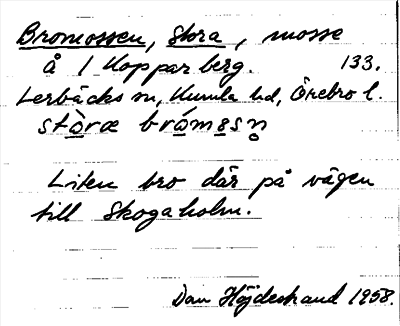 Bromossen, Stora, mosse
å 1 Kopparberg. 133.
Lerbäcks sn, Kumla hd, Örebro l.
stòræ brómosn̥
Liten bro där på vägen
till Skogaholm.
Dan Höjdestrand 1958.